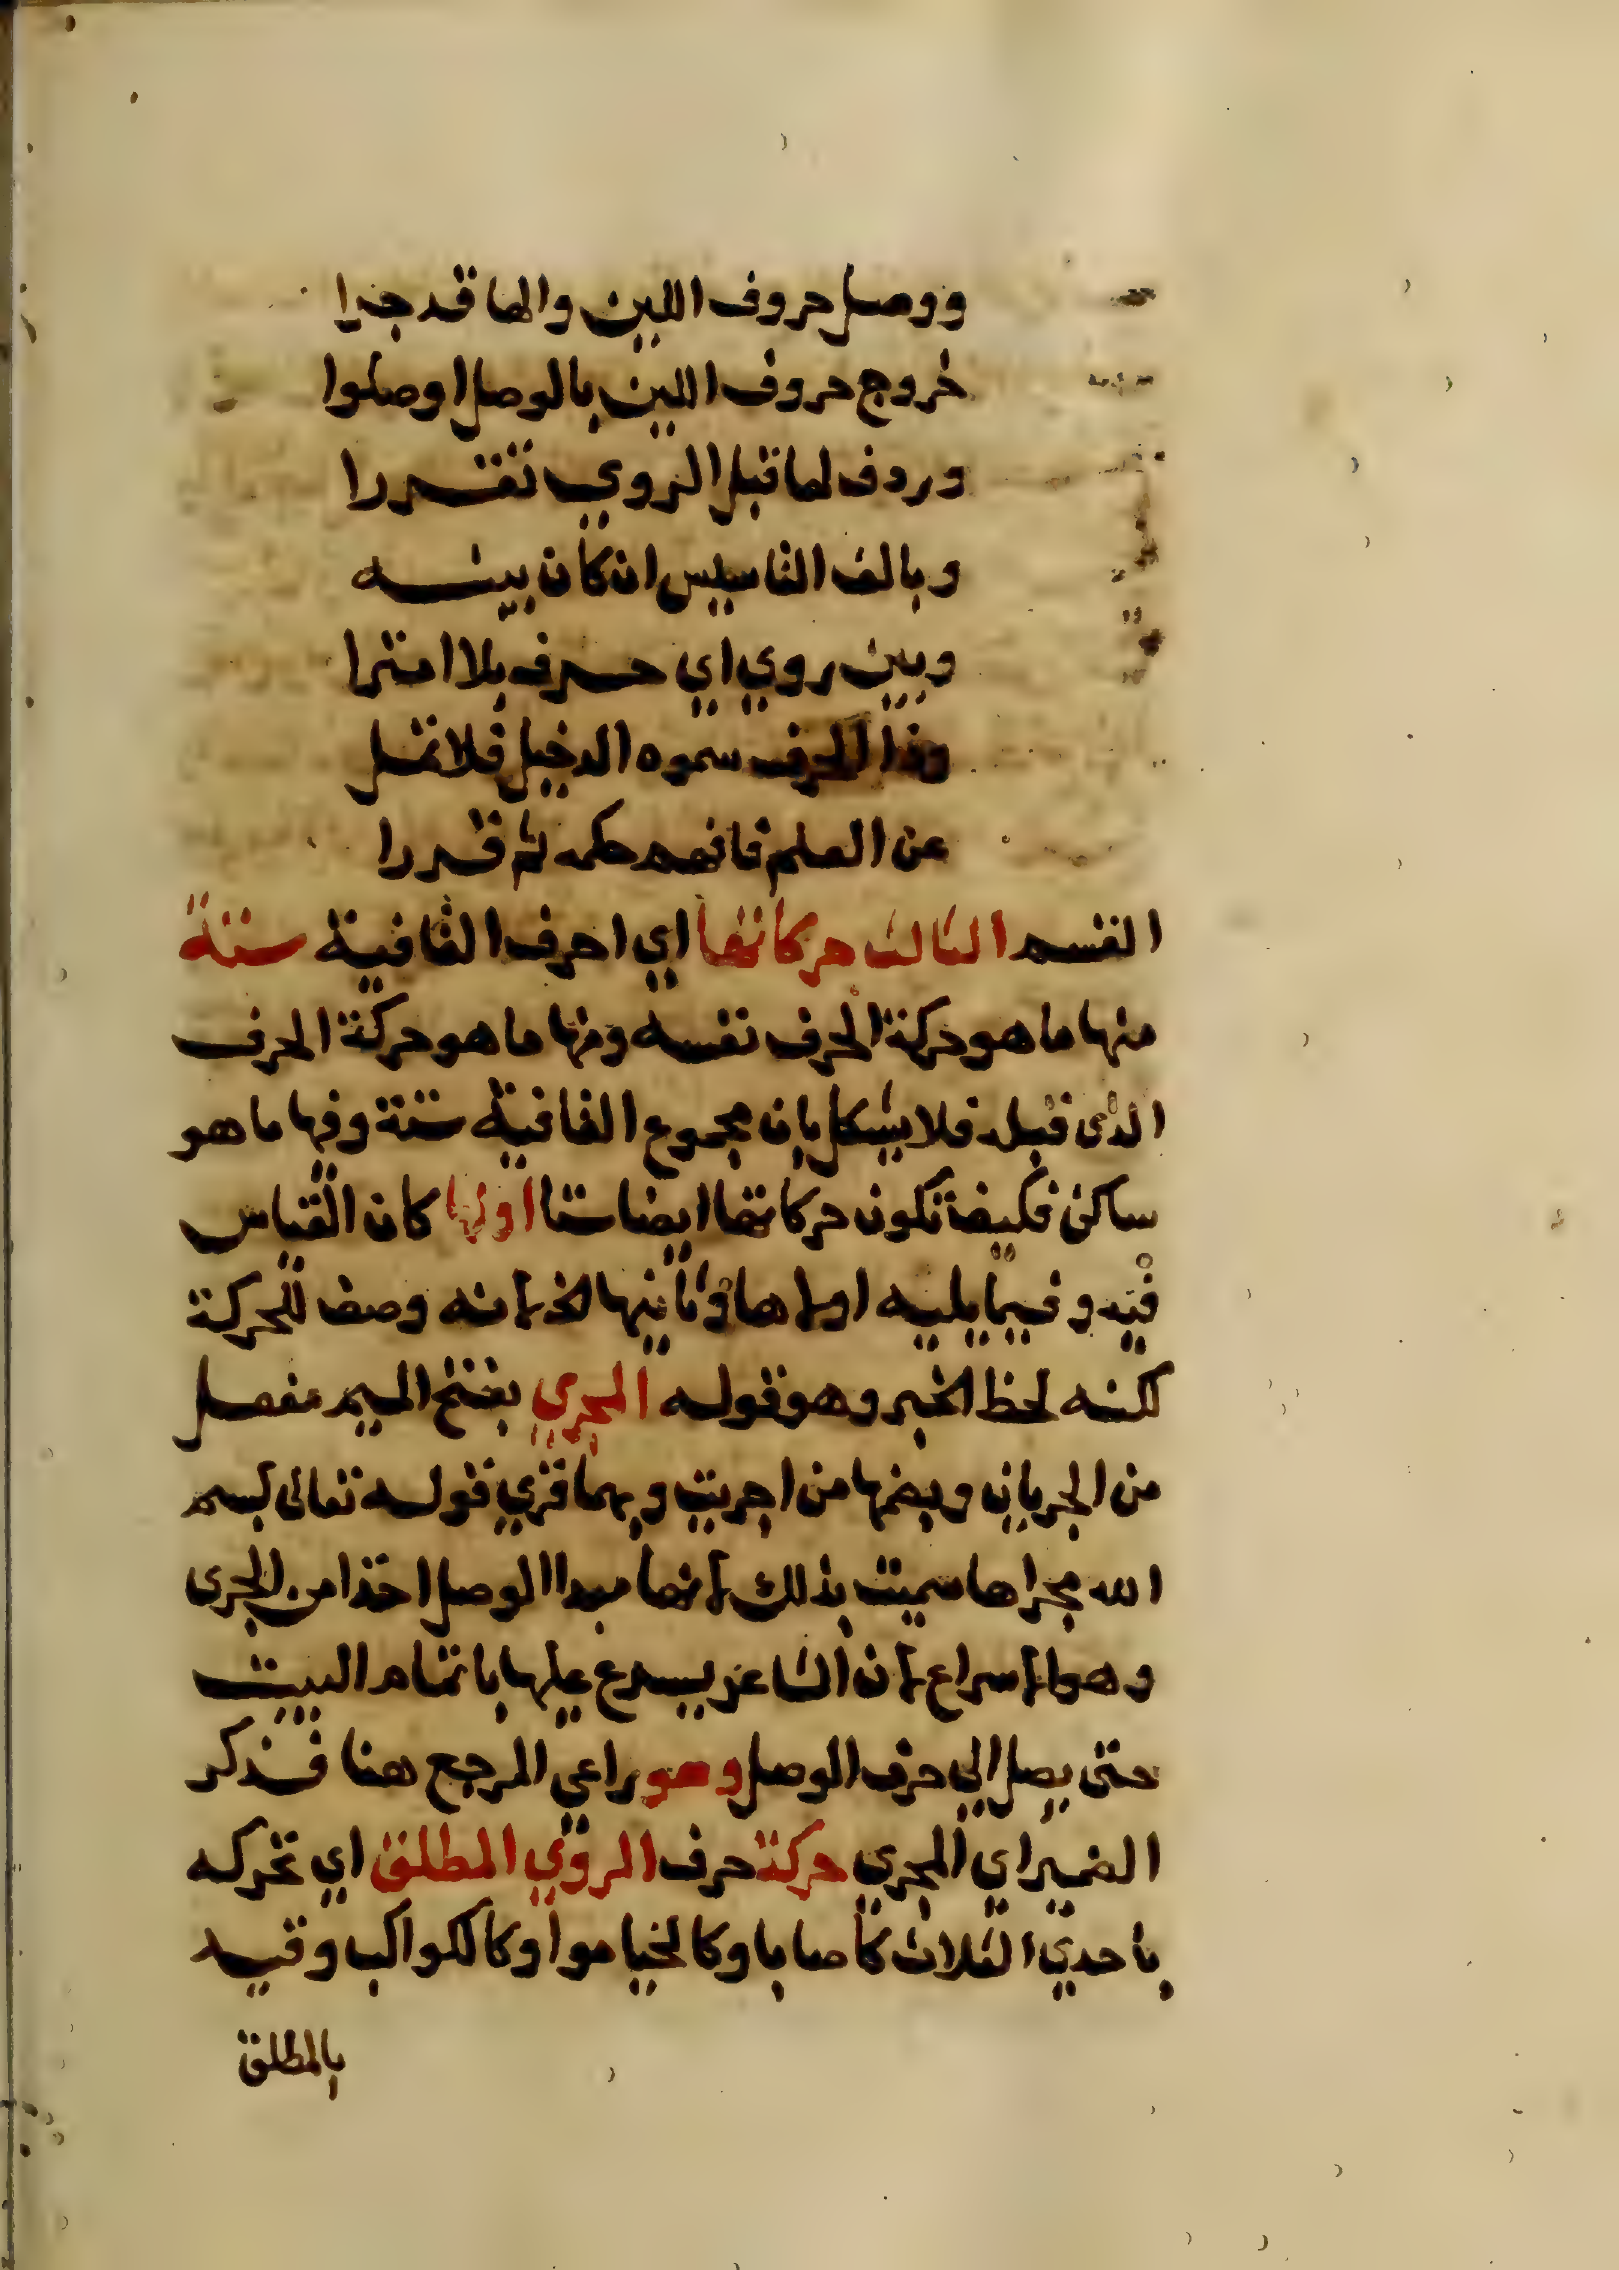 ووصل حروف اللين والها قد جرا
خروج حروف اللين بالوصل اوصلوا
وردف لما قبل الروي تقررا
وبالف التاسيس ان كان بينه
وبين روي اي حرف بلا امترا
وذا الحرف سموه الدخيل فلا تمل
عن العلم فافهم حكمه ثم قررا
القسم الثالث حركاتها اي احرف القافية ستة
منها ما هو حركة الحرف نفسه ومنها ما هو حركة الحرف
الذى قبله فلا يشكل بان مجموع القافية ستة وفيها ما هو
ساكن فكيف تكون حركاتها ايضا ستا اولها كان القياس
فيه وفيما يليه اولاها وثانيتها الخ لانه وصف للحركة
لكنه لحظ الخبر وهو قوله المجري بفتح الميم مفعل
من الجريان وبضمها من اجريت وبهما قري قوله تعالى بسم
الله مجراها سميت بذلك لانها مبدا الوصل اخذا من الجرى
وهو الاسراع لان الشاعر يسرع عليها باتمام البيت
حتى يصل الي حرف الوصل وهو راعي المرجع هنا فذكر
الضمير اي المجري حركة حرف الروي المطلق اي تحركه
باحدي الثلاث كاصابا وكالخيامو او كالكواكب وقيد
بالمطلق